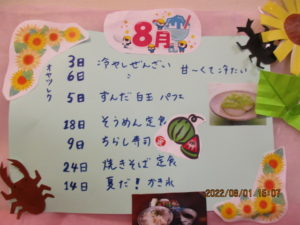 8月
オヤツレク
3日 冷やしぜんざい 甘〜くて冷たい
6日 〃
5日 ずんだ白玉パフェ
18日 そうめん定食
9日 ちらし寿司
24日 焼きそば定食
14日 夏だ！かき氷
2022/08/01 16:07